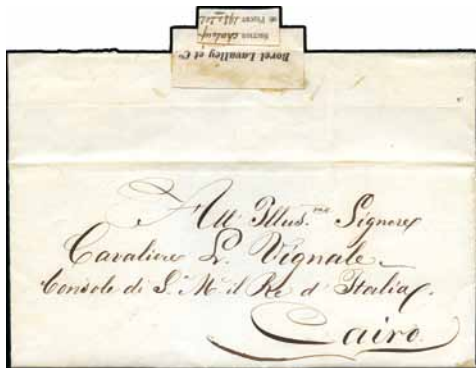 Borel Lavalley et Cie
All' Illus.mo Signore
Cavaliere L. Vignale
Console di S. M. il Re d'Italia.
Cairo